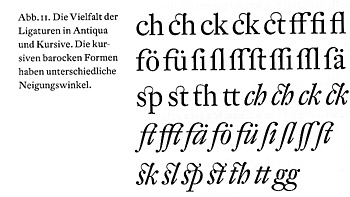 Abb. 11. Die Vielfalt der
Ligaturen in Antiqua
und Kursive. Die kur-
siven barocken Formen
haben unterschiedliche
Neigungswinkel.
ch ch ck ck ct ff
fö fü ſi ſl fä
sp st th tt ch ch ck ck
ft fft fä fö fü ſi ſl ſſ ſt
sk sl sp st th tt gg